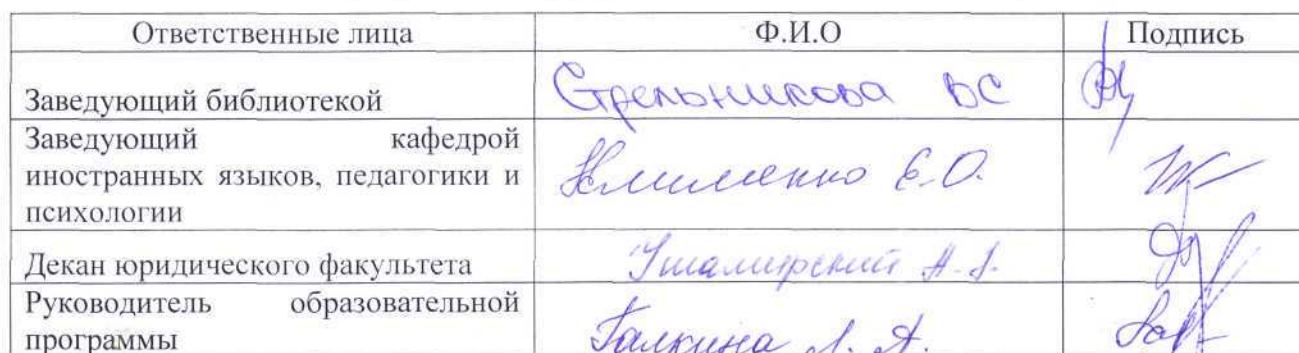 Ответственные лица Ф.И.О Подпись
Заведующий библиотекой Стрельникова ВС
Заведующий кафедрой
иностранных языков, педагогики и Клименко Е.О.
психологии
Декан юридического факультета
Руководитель образовательной
программы Галкина Л. А.